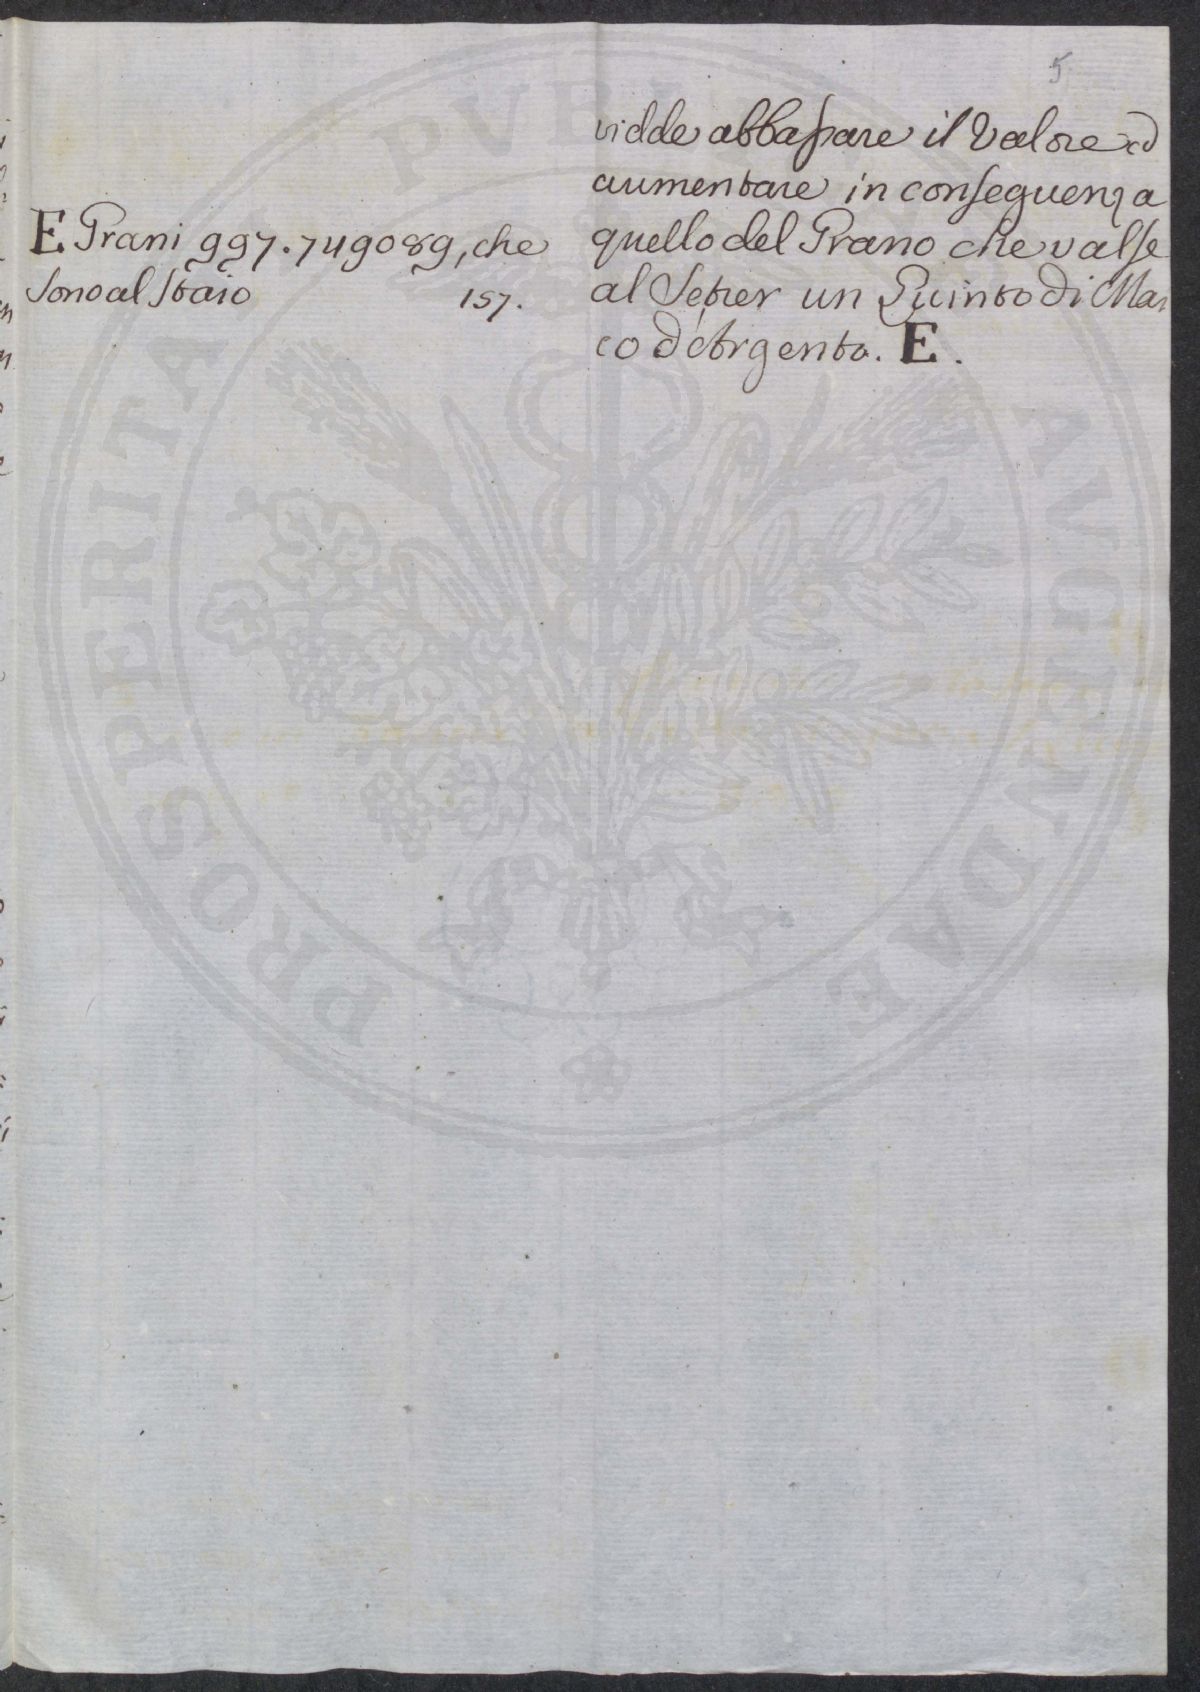 5
vidde abbassare il Valore ed
aumentare in conseguenza
quello del Grano che valse
al Setier un Quinto di Mar
co d'Argento. E.
E Grani 997.749089, che
sono al Staio 157.
PROSPERITATI PVBLICAE AVGENDAE